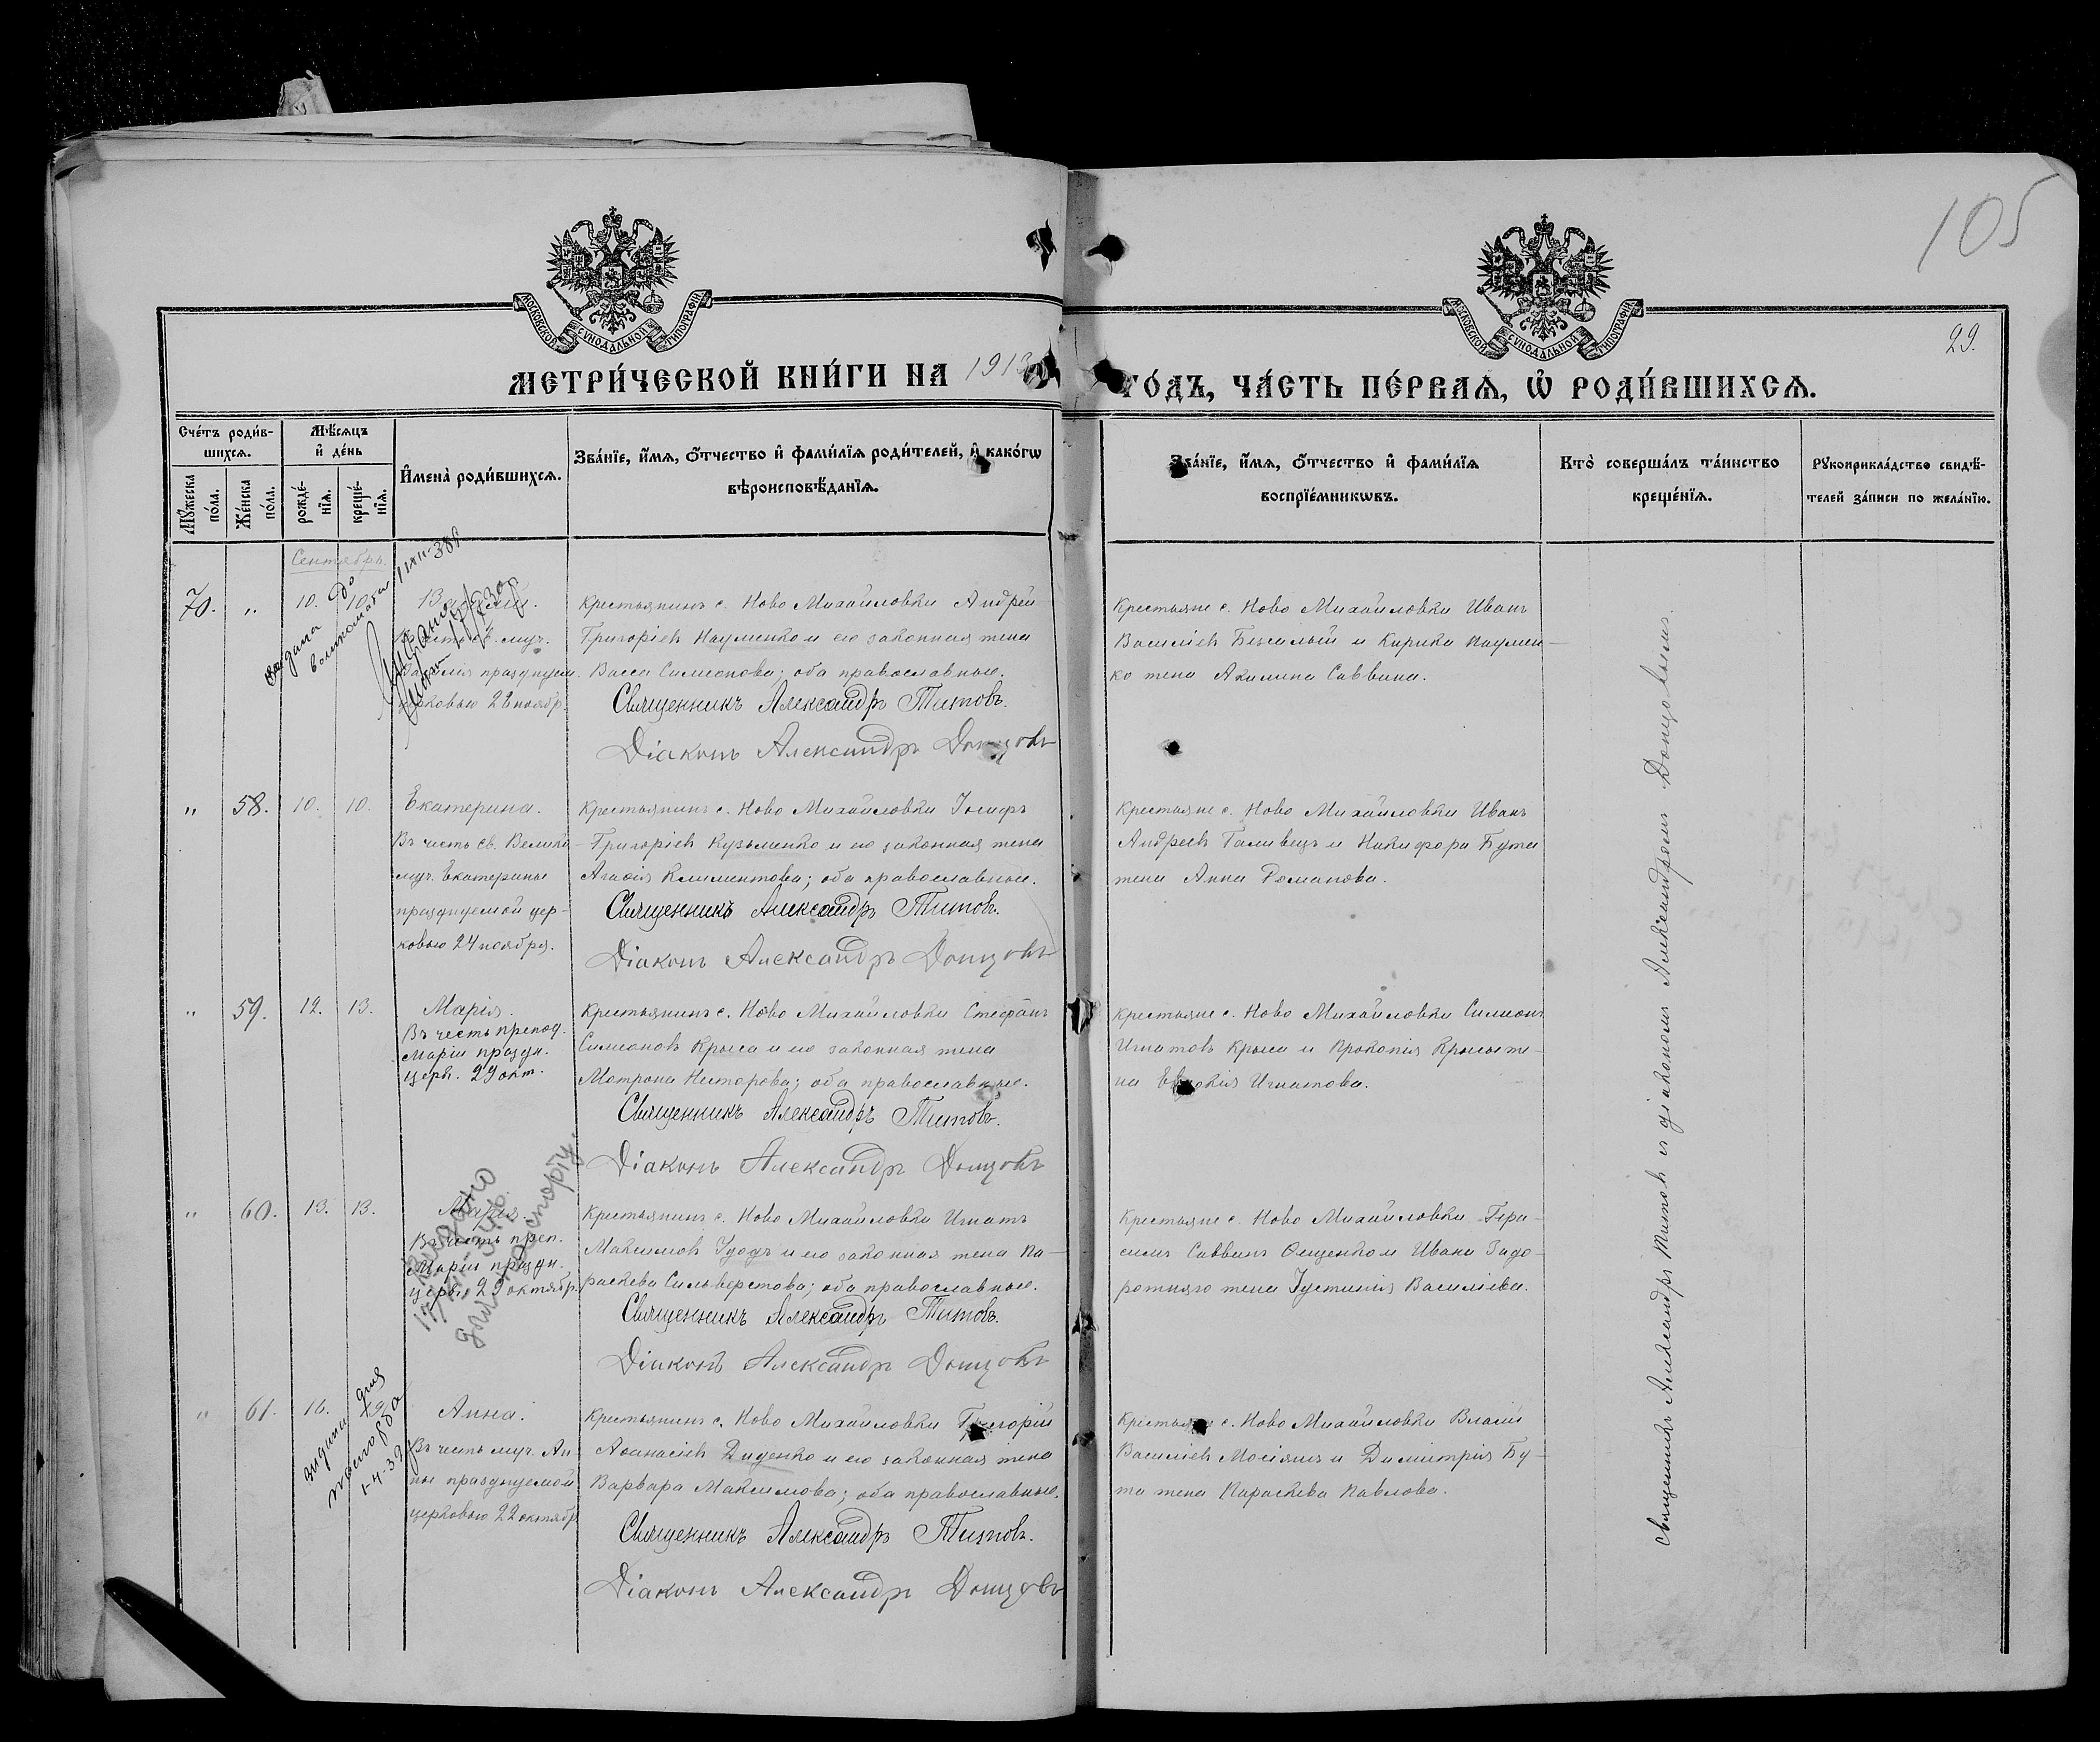 105
МОСКОВСКОЙ СУНОДАЛЬНОЙ ТИПОГРАФІИ
МОСКОВСКОЙ СУНОДАЛЬНОЙ ТИПОГРАФІИ
29.
МЕТРИ́ЧЕСКОЙ КНИ́ГИ НА 1913 ГО́ДЪ, ЧА́СТЬ ПЕ́РВАѦ, Ѡ҆ РОДИ́ВШИХСѦ.
Сче́тъ роди́в-
шихсѧ.
Мѣ́сѧцъ
и҆ де́нь
Мꙋ́жеска
по́ла.
Же́нска
по́ла.
рожде́-
нїѧ.
креще́-
нїѧ.
И҆мена̀ роди́вшихсѧ.
Зва́нїе, и҆́мѧ, ѻ҆́тчество и҆ фами́лїѧ роди́телей, и҆ како́гѡ
вѣроисповѣ́данїѧ.
Зва́нїе, и҆́мѧ, ѻ҆́тчество и҆ фами́лїѧ
воспрїе́мникѡвъ.
Кто̀ соверша́лъ та́инство
креще́нїѧ.
Рꙋкоприкла́дство свидѣ́-
телей за́писи по жела́нїю.
Сентябрь.
70. " 10. 10.
Крестьянинъ с. Ново Михайловки Андрей
Григоріевъ Науменко и его законная жена
Васса Симеонова; оба православные.
Священникъ Александръ Титовъ.
Діаконъ Александръ Донцовъ
муч.
празднуем.
церковью 22 ноябр.
Крестьяне с. Ново Михайловки Иванъ
Василіевъ Безсалый и Кирика Наумен-
ко жена Акилина Саввина.
" 58. 10. 10. Екатерина.
Въ честь св. Велико-
муч. Екатерины
празднуемой цер-
ковью 24 ноября.
Крестьянинъ с. Ново Михайловки Іосифъ
Григоріевъ Кузьменко и его законная жена
Агафія Климентова; оба православные.
Священникъ Александръ Титовъ.
Діаконъ Александръ Донцовъ
Крестьяне с. Ново Михайловки Иванъ
Андреевъ Галивецъ и Никифора Бута
жена Анна Романова.
" 59. 12. 13. Марія.
Въ честь препод.
Маріи праздн.
церк. 29 окт.
Крестьянинъ с. Ново Михайловки Стефанъ
Симеоновъ Крыса и его законная жена
Матрона Несторова; оба православные.
Священникъ Александръ Титовъ.
Діаконъ Александръ Донцовъ
Крестьяне с. Ново Михайловки Симеонъ
Игнатовъ Крыса и Прокопія Крысы же-
на Евдокія Игнатова.
" 60. 13. 13. Марія.
Въ честь преп.
Маріи праздн.
церк. 29 октябр.
Крестьянинъ с. Ново Михайловки Игнатъ
Максимовъ Удодъ и его законная жена Па-
раскева Сильверстова; оба православные.
Священникъ Александръ Титовъ.
Діаконъ Александръ Донцовъ
Крестьяне с. Ново Михайловки Гера-
симъ Саввинъ Онищенко и Ивана Задо-
рожняго жена Іустинія Василіева.
" 61. 16. Анна.
Въ честь муч. Ан-
ны празднуемой
церковью 22 октябр.
Крестьянинъ с. Ново Михайловки Григорій
Аѳанасіевъ Диденко и его законная жена
Варвара Максимова; оба православные.
Священникъ Александръ Титовъ.
Діаконъ Александръ Донцовъ
Крестьяне с. Ново Михайловки Власій
Василіевъ Мосіяшъ и Димитрія Бу-
та жена Параскева Павлова.
Священникъ Александръ Титовъ и діакономъ Александромъ Донцовымъ